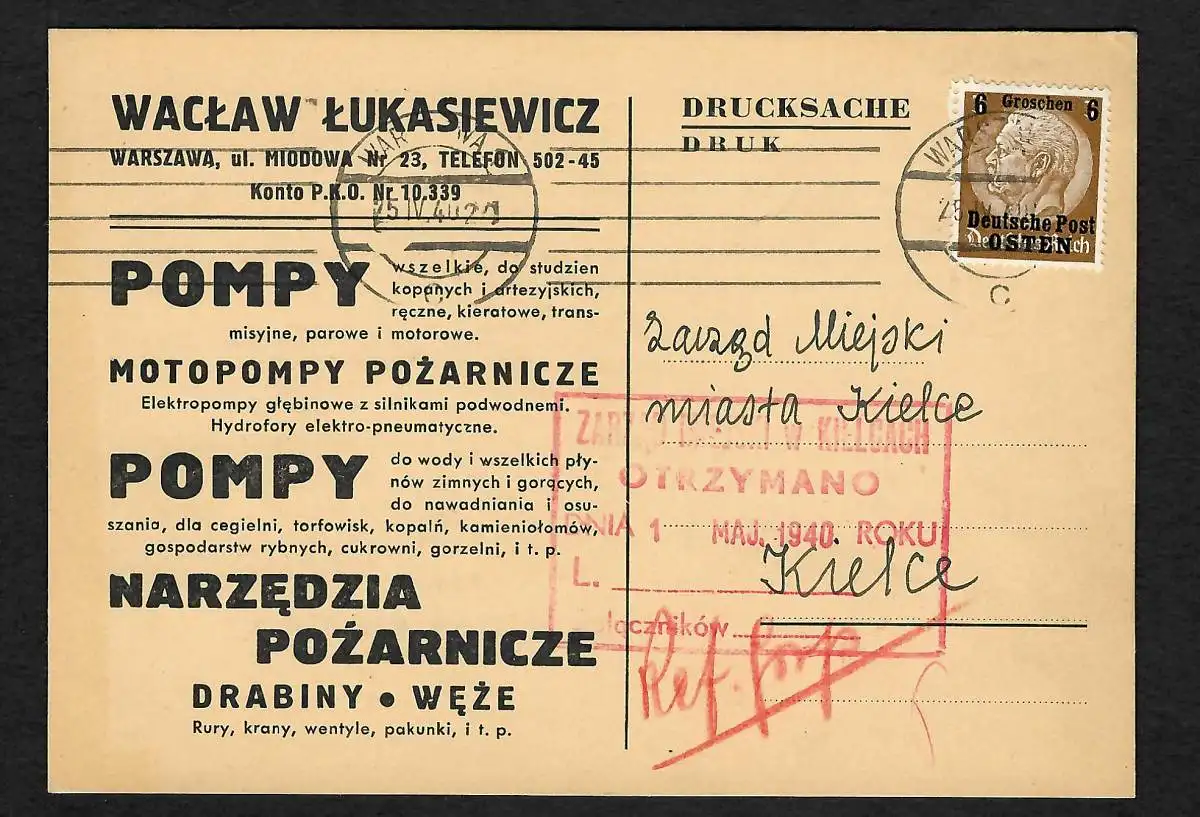 WACŁAW ŁUKASIEWICZ
WARSZAWA, ul. MIODOWA Nr 23, TELEFON 502-45
Konto P.K.O. Nr 10.339
POMPY wszelkie, do studzien
kopanych i artezyjskich,
ręczne, kieratowe, trans-
misyjne, parowe i motorowe.
MOTOPOMPY POŻARNICZE
Elektropompy głębinowe z silnikami podwodnemi.
Hydrofory elektro-pneumatyczne.
POMPY do wody i wszelkich pły-
nów zimnych i gorących,
do nawadniania i osu-
szania, dla cegielni, torfowisk, kopalń, kamieniołomów,
gospodarstw rybnych, cukrowni, gorzelni, i t. p.
NARZĘDZIA
POŻARNICZE
DRABINY • WĘŻE
Rury, krany, wentyle, pakunki, i t. p.
25 IV. 40
C
DRUCKSACHE
DRUK
6 Groschen 6
Deutsche Post
OSTEN
Deutsches Reich
C
Zarząd Miejski
miasta Kielce
Kielce
ZARZĄD MIEJSKI W KIELCACH
OTRZYMANO
DNIA 1 MAJ. 1940 ROKU
L.
łączników
Ref.